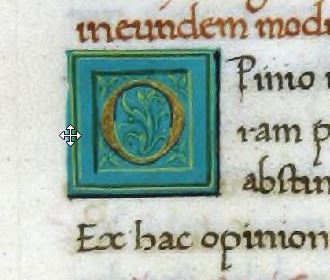 in eundem modu
O Pinio
ram p
abstin
Ex hac opinion